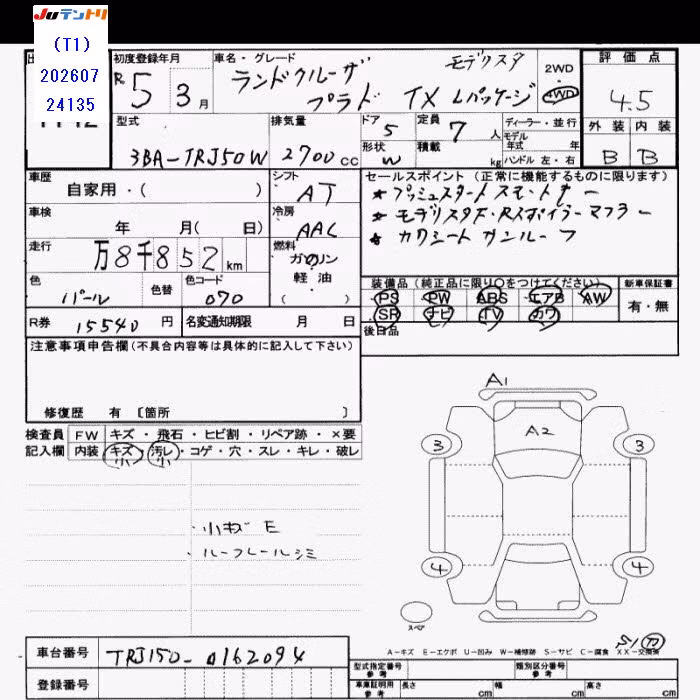 JUテントリ
(T1)
202607
24135
初度登録年月
R 5 3月
車名・グレード
ランドクルーザ
プラド TX Lパッケージ
モデリスタ
2WD
4WD
評価点
4.5
外装 内装
B B
型式
3BA-TRJ150W
排気量
2700cc
ドア 5
形状 W
定員 7人
積載 kg
ディーラー・並行
モデル年式 年
ハンドル 左・右
車歴
自家用・( )
シフト
AT
車検
年 月( 日)
冷房
AAC
走行
万8千852km
燃料
ガソリン
軽油
( )
色
パール
色替
色コード
070
R券 15540円
名変通知期限 月 日
セールスポイント (正常に機能するものに限ります)
★プッシュスタート スマートキー
★モデリスタF・Rスポイラー マフラー
★カワシート サンルーフ
装備品(純正品に限り○をつけてください)
PS PW ABS エアB AW
SR ナビ TV カワ
新車保証書
有・無
後日品
注意事項申告欄(不具合内容等は具体的に記入して下さい)
修復歴 有 〔箇所 〕
検査員記入欄
FW キズ・飛石・ヒビ割・リペア跡・×要
内装 キズ・汚レ・コゲ・穴・スレ・キレ・破レ
小 小
・小キズ E
・ルーフレールシミ
A1
A2
3 3
4 4
スペア
A-キズ E-エクボ U-凹み W-補修跡 S-サビ C-腐食 XX-交換済
車台番号 TRJ150-0162094
登録番号
型式指定番号 参考
類別区分番号 参考
車庫証明用 参考 長さ cm 幅 cm 高さ cm